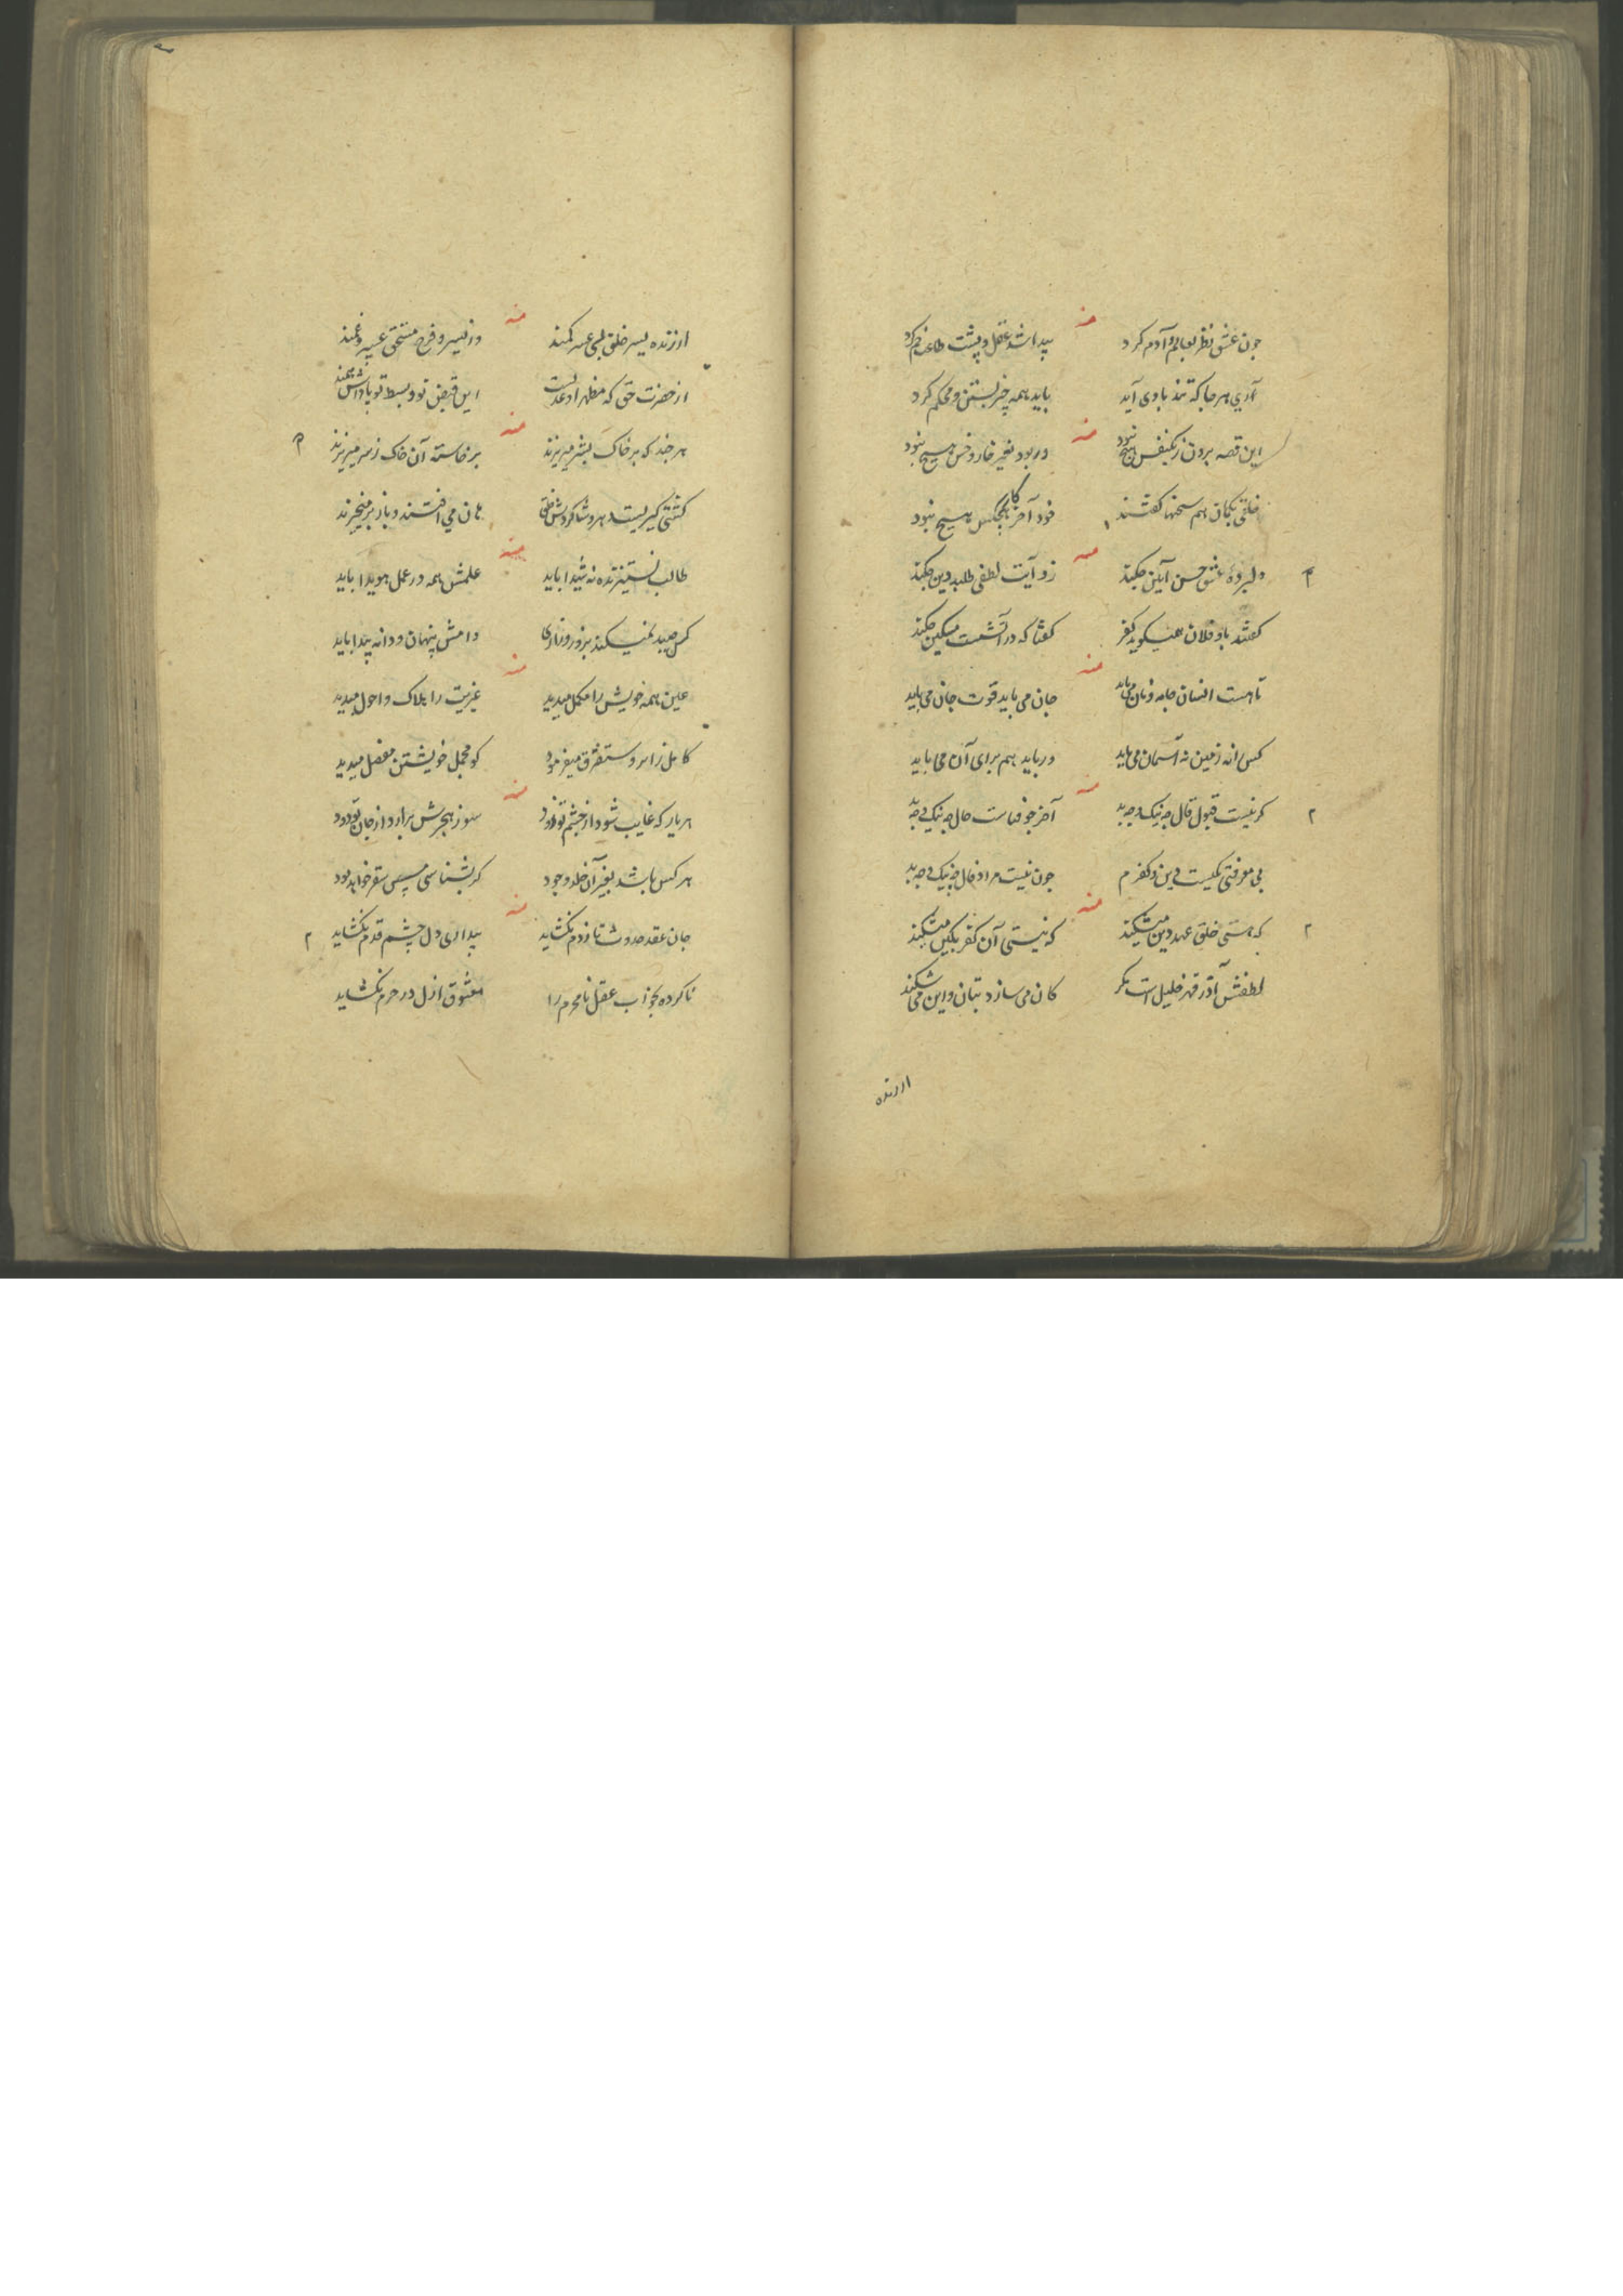 منه
چون عشق نظر بعالم و آدم کرد
پیدا شد عقل و پشت طاعت خم کرد
آری هر جا که تند بادی آید
باید همه چیز بستن و محکم کرد
منه
این قصه برون ز یکنفس هیچ نبود
در بود بغیر خار و خس هیچ نبود
خلقی بگمان هم سخنها گفتند
خود آخر کار هیچکس هیچ نبود
منه
دلبرده عشق حسن آیین چکند
زو آیت لطفی طلبد دین چکند
گفتند باو فلان همیگوید کفر
گفتا که در آتشست مسکین چکند
منه
تا هست انسان جامه و نان می‌باید
جان می باید قوت جان می باید
کس را نه زمین نه آسمان می باید
ور باید هم برای آن می باید
منه
گر نیست قبول قال چه نیک و چه بد
آخر چو فناست حال چه نیک و چه بد
بی معرفتی یکیست دین و کفرم
چون نیست مراد فال چه نیک و چه بد
منه
که هستی خلق عهد دین میشکند
که نیستی آن کفر بکین میشکند
لطفش آذر قهر خلیل است نگر
کان می سازد بتان و این می شکند
ارزنده
منه
ارزنده بیسر خلق
از حضرت حق که مظهر او
این قبض تو و بسط تو پاداش
منه
هر چند که بر خاک بشر میریزند
برخاسته آن خاک ز سر میریزند
کشتی گیریست دهر و شاگردش خلق
هان می افتند و باز بر میخیزند
منه
طالب نستیزنده نه شیدا باید
علمش همه در عمل هویدا باید
کس صید نمیکند بزور و زاری
دامش پنهان و دانه پیدا باید
منه
عین همه خویش را مکمل میدید
غیریت را هلاک و احول میدید
کامل ز ابر و متفرق میفرمود
کو مجمل خویشتن مفصل میدید
منه
هر یار که غایب شود از چشم تو زود
سوز هجرش برآرد از جان تو دود
هر کس باشد بغیر آن خلد وجود
گر بشناسی سپس سقر خواهد بود
منه
جان عقد حدوث تا ز دم نگشاید
بیداری دل چشم قدم نگشاید
ناکرده بخواب عقل نامحرم را
معشوق ازل در حرم نگشاید